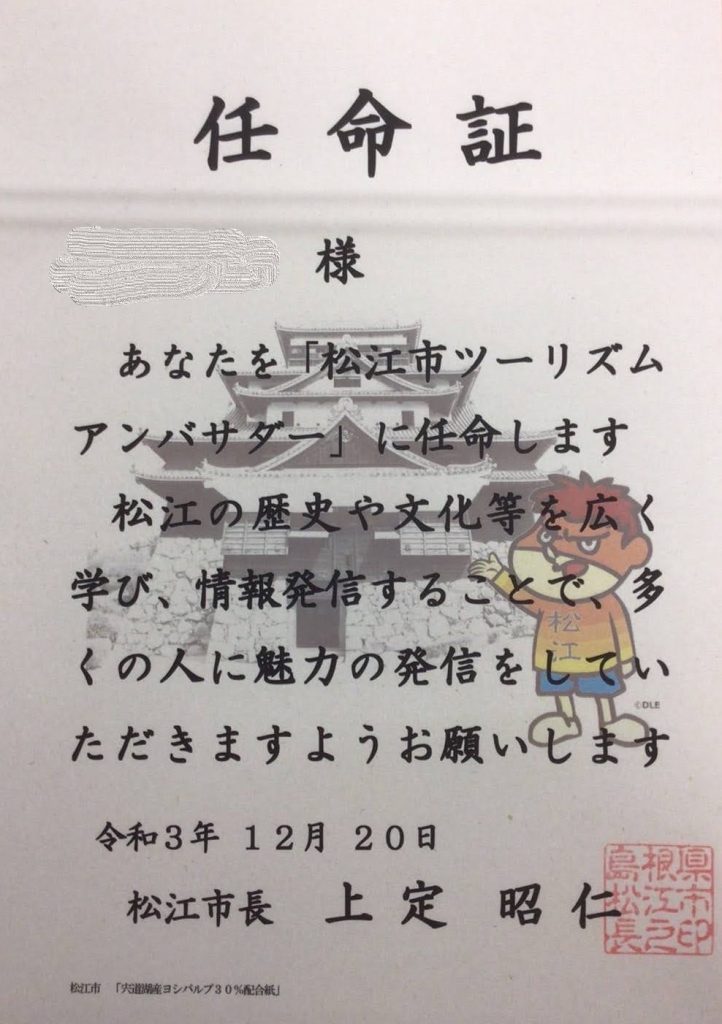 任命証
様
あなたを「松江市ツーリズム
アンバサダー」に任命します
松江の歴史や文化等を広く
学び、情報発信することで、多
くの人に魅力の発信をしてい
ただきますようお願いします
松江
©DLE
令和3年 12月 20日
松江市長 上定 昭仁
島根県
松江市
長之印
松江市 「宍道湖産ヨシパルプ30%配合紙」